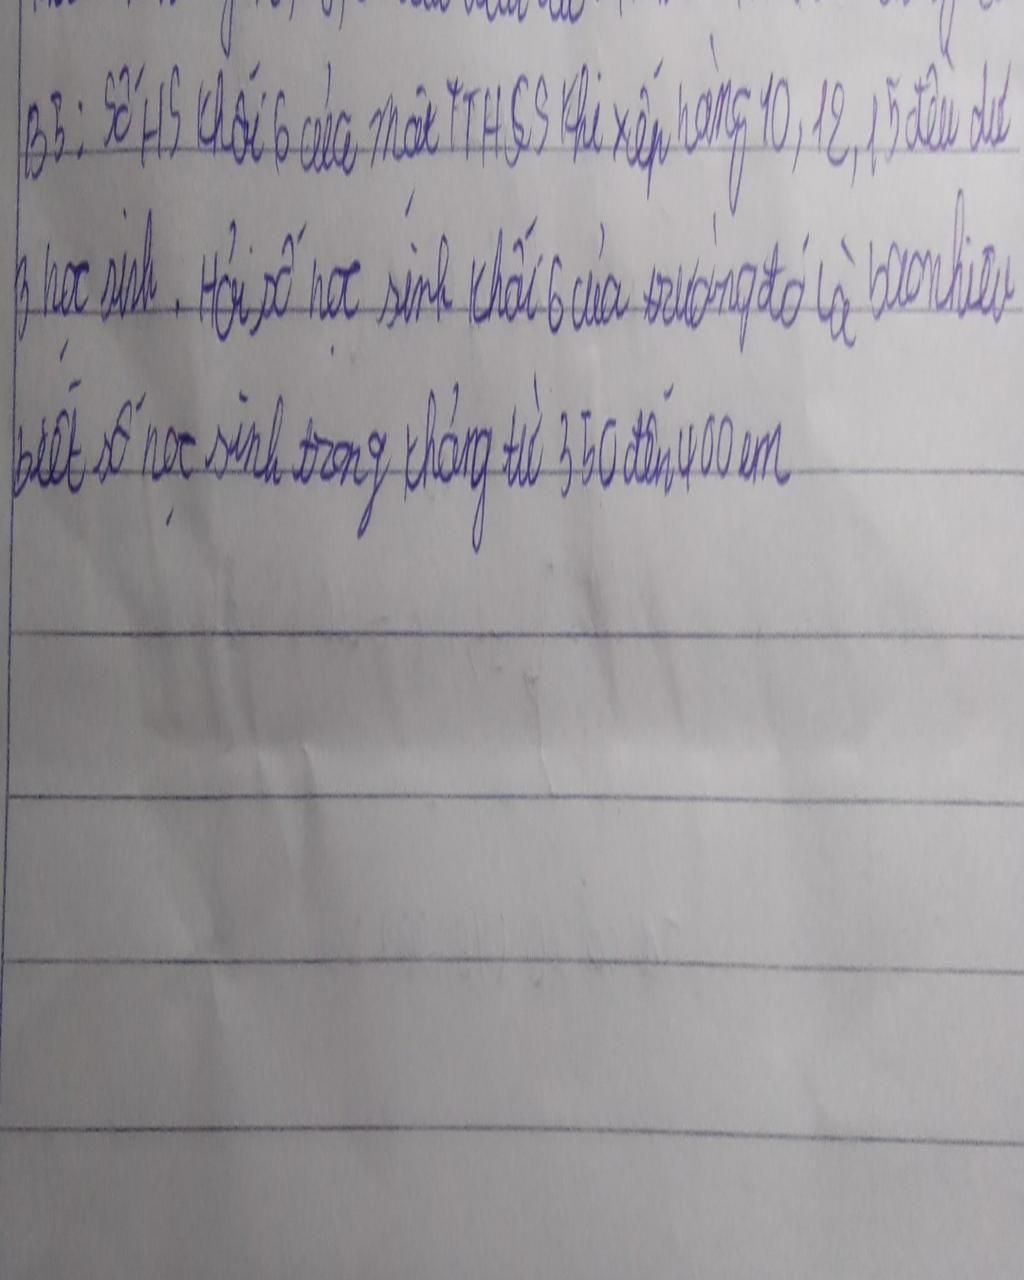 B5: Số HS khối 6 của một TTHCS khi xếp hàng 10, 12, 15 đều dư
3 học sinh. Hỏi số học sinh khối 6 của trường đó là bao nhiêu
biết số học sinh trong khảng từ 350 đến 400 em